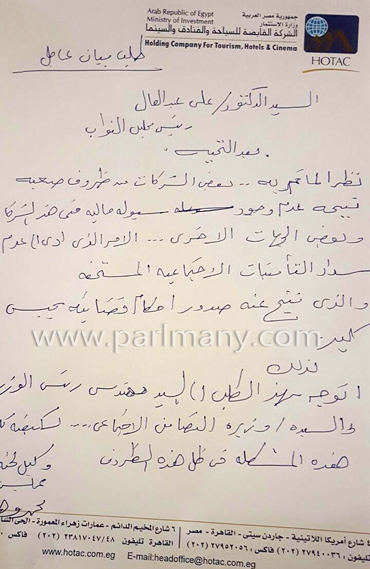 Arab Republic of Egypt
Ministry of Investment
جمهورية مصر العربية
وزارة الاستثمار
الشركة القابضة للسياحة والفنادق والسينما
Holding Company For Tourism, Hotels & Cinema
HOTAC
طلب بيان عاجل
السيد الدكتور/ على عبد العال
رئيس مجلس النواب
بعد التحية،
نظرا لما تمر به .. بعض الشركات من ظروف صعبة
نتيجة عدم وجود سيوله ماليه فى هذه الشركا
وبعض الجهات الاخرى ... الامر الذى ادى الى عدم
سداد التأمينات الاجتماعيه المستحقه
والذى نتج عنه صدور احكام قضائيه بحبس
كثير
www.parlmany.com
لذلك
اتوجه بهذا الطلب الى السيد مهندس رئيس الوزر
والسيده/ وزيرة التضامن الاجتماعى ... لكيفيه
هذه المشكله فى ظل هذه الظروف
وكيل لجنة
٤ شارع أمريكا اللاتينية - جاردن سيتى - القاهرة - مصر
٦ شارع المخيم الدائم - عمارات زهراء المعمورة - الحى
تليفون : ٢٧٩٤٠٠٣٦ (٢٠٢) فاكس : ٢٧٩٥٢٠٥٦ (٢٠٢)
القاهرة تليفون : ٢٣٨١٧٠٤٧/٤٨ (٢٠٢) فاكس :
www.hotac.com.eg E-mail:headoffice@hotac.com.eg